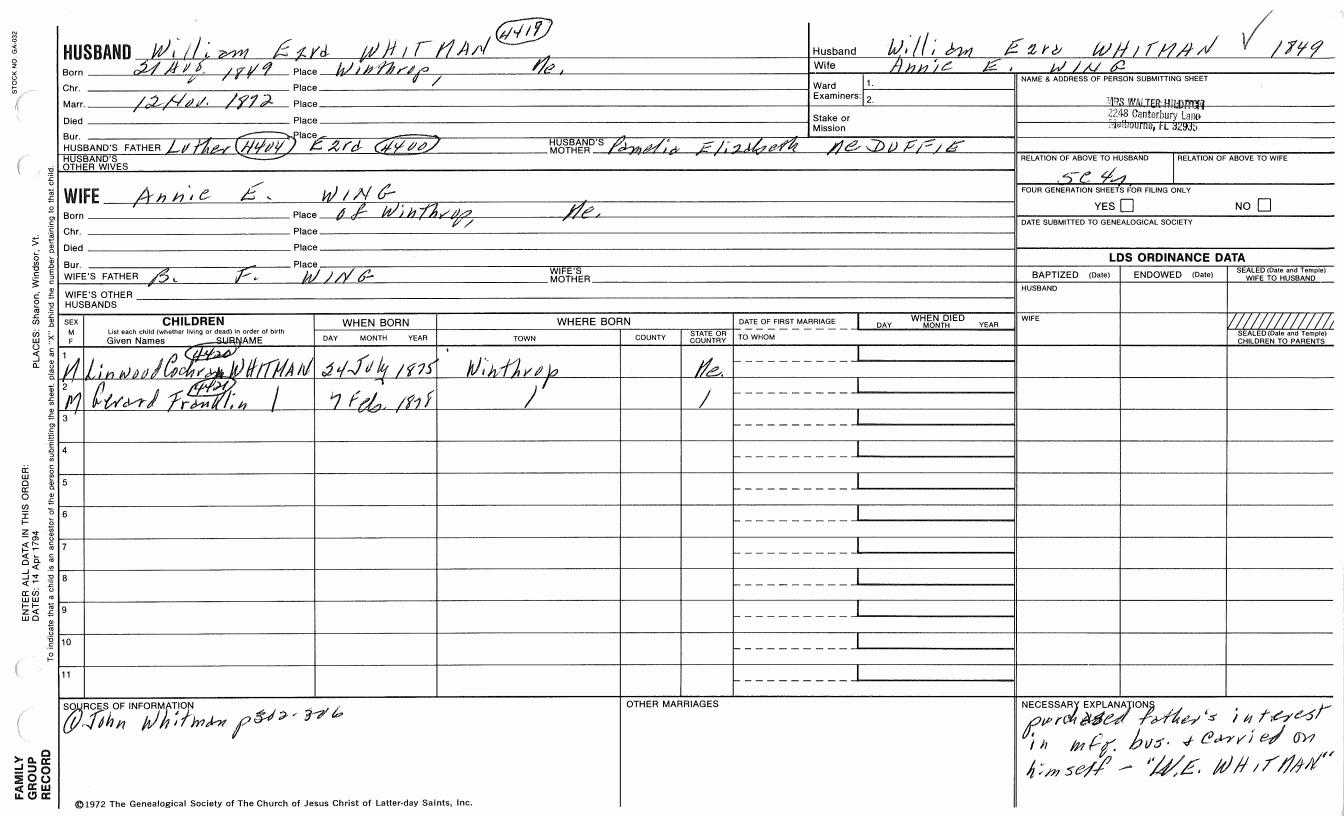 STOCK NO. GA-032
HUSBAND William Ezra WHITMAN 4419
Born 21 Aug. 1849 Place Winthrop, Me.
Chr. Place
Marr. 12 Nov. 1872 Place
Died Place
Bur. Place
HUSBAND'S FATHER Luther 4404 Ezra 4400 HUSBAND'S MOTHER Pamelia Elizabeth McDUFFIE
HUSBAND'S OTHER WIVES
WIFE Annie E. WING
Born Place of Winthrop, Me.
Chr. Place
Died Place
Bur. Place
WIFE'S FATHER B. F. WING WIFE'S MOTHER
WIFE'S OTHER HUSBANDS
Husband William Ezra WHITMAN ✓ 1849
Wife Annie E. WING
Ward Examiners: 1.
2.
Stake or Mission
NAME & ADDRESS OF PERSON SUBMITTING SHEET
MRS WALTER
2248 Canterbury Lane
Melbourne, FL 32935
RELATION OF ABOVE TO HUSBAND RELATION OF ABOVE TO WIFE
5C4r
FOUR GENERATION SHEETS FOR FILING ONLY
YES NO
DATE SUBMITTED TO GENEALOGICAL SOCIETY
LDS ORDINANCE DATA
BAPTIZED (Date) ENDOWED (Date) SEALED (Date and Temple) WIFE TO HUSBAND
HUSBAND
WIFE
SEALED (Date and Temple) CHILDREN TO PARENTS
SEX M F CHILDREN WHEN BORN WHERE BORN DATE OF FIRST MARRIAGE WHEN DIED
List each child (whether living or dead) in order of birth
Given Names SURNAME DAY MONTH YEAR TOWN COUNTY STATE OR COUNTRY TO WHOM DAY MONTH YEAR
1 M Linwood Cochran WHITMAN 4420 24 July 1875 Winthrop Me.
2 M Gerard Franklin 4421 7 Feb. 1878
3
4
5
6
7
8
9
10
11
SOURCES OF INFORMATION
① John Whitman p302-306
OTHER MARRIAGES
NECESSARY EXPLANATIONS
purchased father's interest
in mfg. bus. & carried on
himself - "W.E. WHITMAN"
©1972 The Genealogical Society of The Church of Jesus Christ of Latter-day Saints, Inc.
PLACES: Sharon, Windsor, Vt.
ENTER ALL DATA IN THIS ORDER:
DATES: 14 Apr 1794
To indicate that a child is an ancestor of the person submitting the sheet, place an "X" behind the number pertaining to that child.
FAMILY
GROUP
RECORD